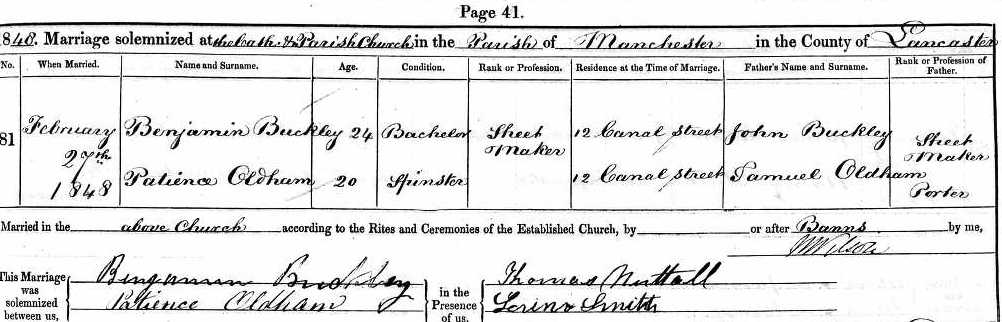 Page 41.
1848. Marriage solemnized at the Cath. & Parish Church in the Parish of Manchester in the County of Lancaster
No. When Married. Name and Surname. Age. Condition. Rank or Profession. Residence at the Time of Marriage. Father's Name and Surname. Rank or Profession of Father.
81 February 27th 1848 Benjamin Buckley 24 Bachelor Sheet Maker 12 Canal Street John Buckley Sheet Maker
Patience Oldham 20 Spinster 12 Canal Street Samuel Oldham Porter
Married in the above Church according to the Rites and Ceremonies of the Established Church, by or after Banns by me,
This Marriage was solemnized between us, Benjamin Buckley in the Presence of us, Thomas Nuttall
Patience Oldham Smith